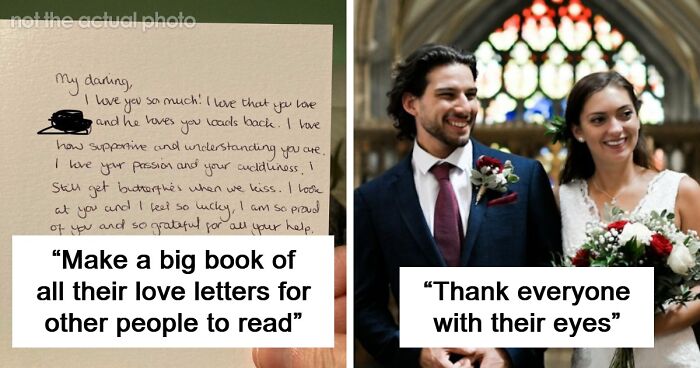 not the actual photo
My darling,
I love you so much! I love that you love
and he loves you loads back. I love
how supportive and understanding you are.
I love your passion and your cuddliness. I
still get butterflies when we kiss. I look
at you and I feel so lucky, I am so proud
of you and so grateful for all your help.
“Make a big book of
all their love letters for
other people to read”
“Thank everyone
with their eyes”